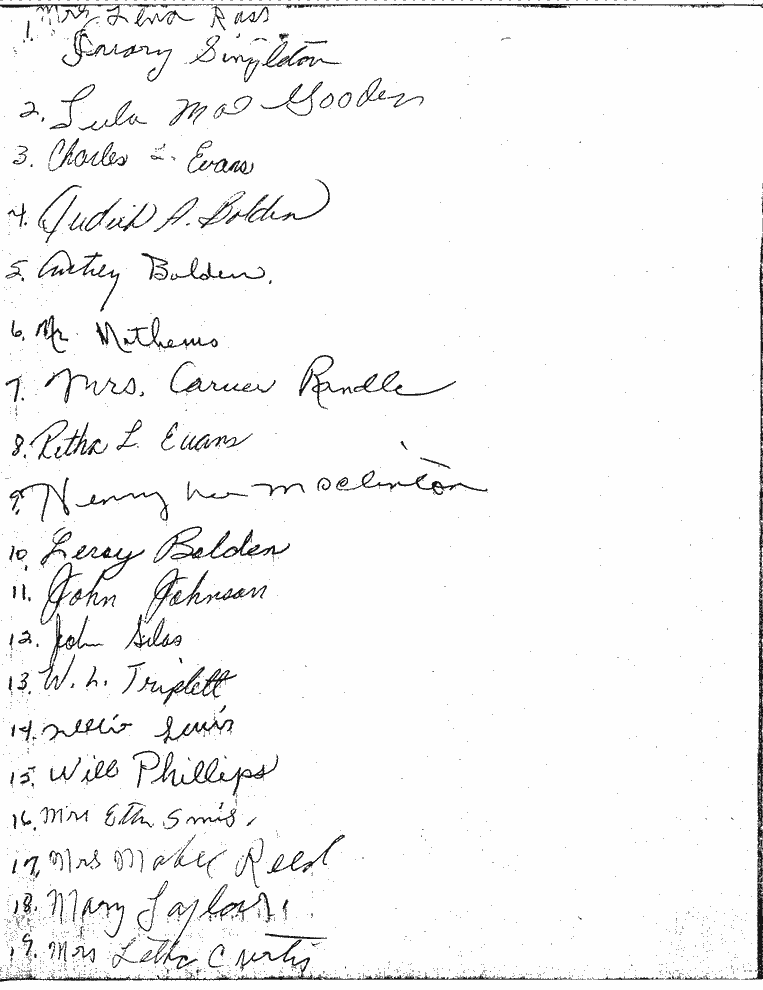 1. Mrs Lena Ross
Singleton
2. Lula Mae Gooden
3. Charles L. Evans
4. Judith A. Bolden
5. Bolden.
6. Mr. Mathews
7. Mrs. Carver Randle
8. Retha L. Evans
9. Henry Lee McClinton
10. Leroy Bolden
11. John Johnson
12. John Silas
13. W. L. Triplett
14. Lewis
15. Will Phillips
16. Mrs Etta
17. Mrs Mabel Reed
18. Mary Taylor
19. Mrs Letha Curtis